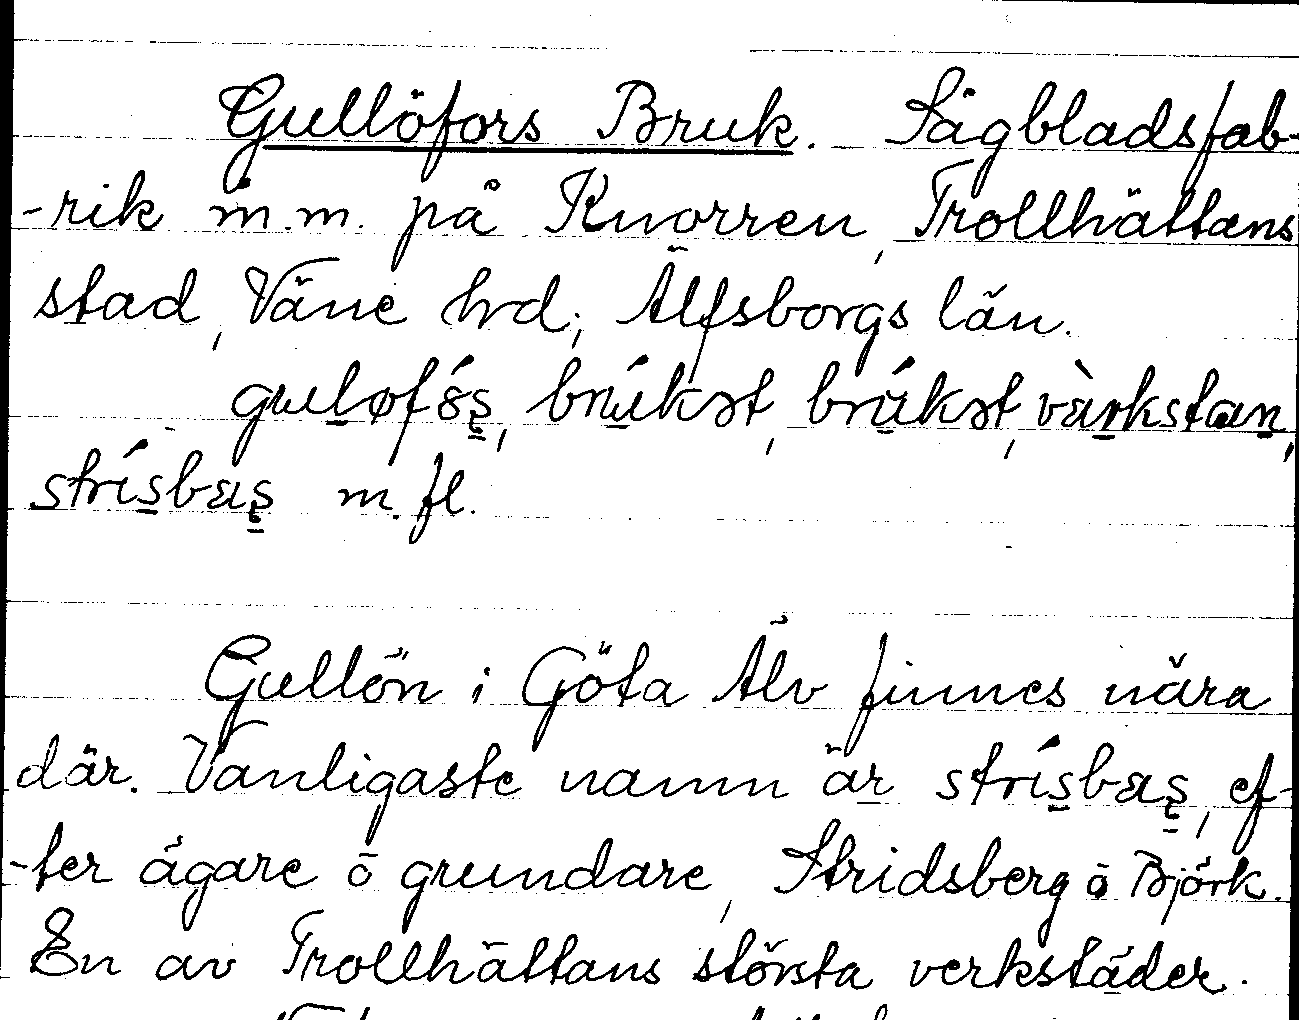 Gullöfors Bruk. Sågbladsfab-
-rik m.m. på Knorren, Trollhättans
stad, Väne hrd; Älfsborgs län.
guløfós̱, brúkət, brúkət, vàrkstan,
strísbæṣ m.fl.
Gullön i Göta Älv finnes nära
där. Vanligaste namn är strísbæṣ, ef-
-ter ägare ō grundare, Stridsberg ō Björk.
En av Trollhättans största verkstäder.